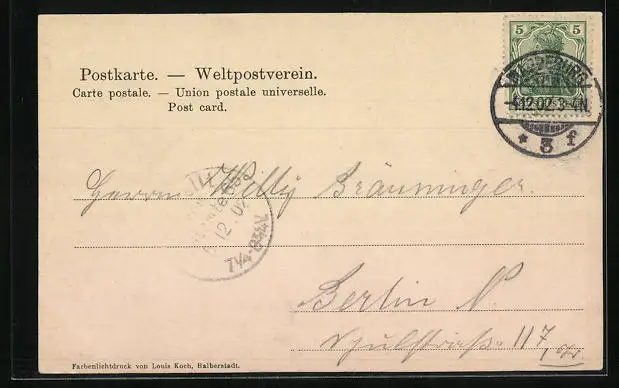 5 5
MAGDEBURG
-4.12.02.3-4N.
* 3 f
Postkarte. — Weltpostverein.
Carte postale. — Union postale universelle.
Post card.
Herrn Willy Bräuninger.
12 02
7¼-8½V.
Berlin N.
Schulstraße 117
Farbenlichtdruck von Louis Koch, Halberstadt.